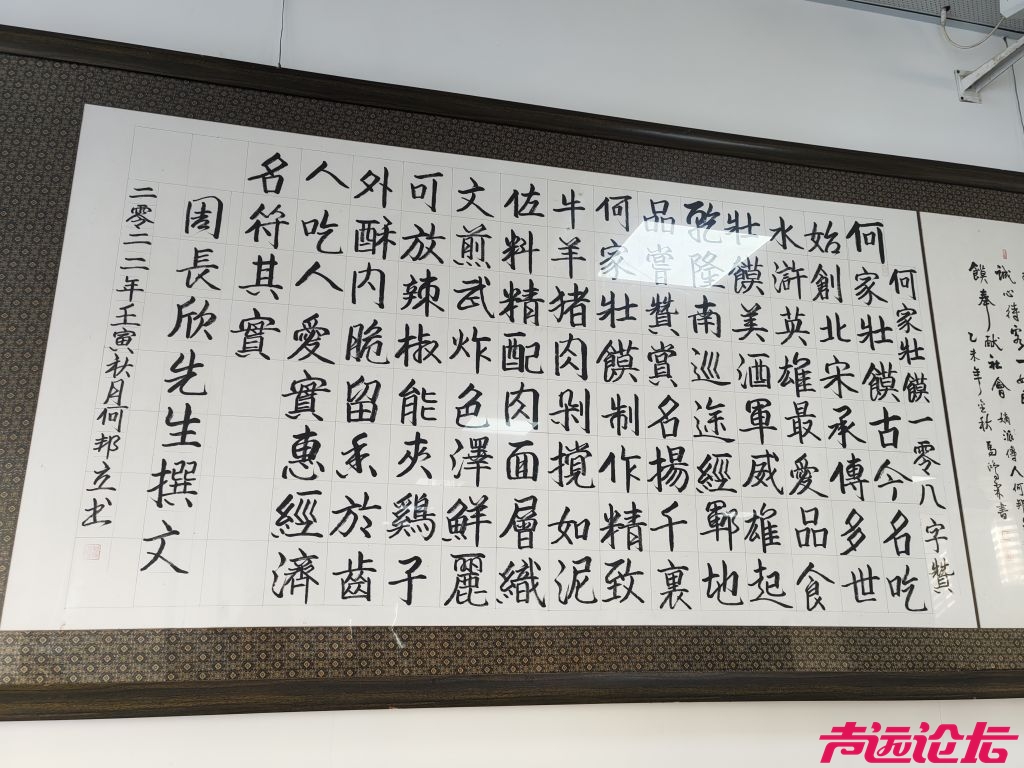 誠心待客一如
饃奉献社會 嫡派傳人何邦
乙未年
何家壯饃一零八字贊
何家壯饃古今名吃
始創北宋承傳多世
水滸英雄最愛品食
壯饃美酒軍威雄起
乾隆南巡途經鄆地
品嘗贊賞名揚千裏
何家壯饃制作精致
牛羊猪肉剁攪如泥
佐料精配肉面層織
文煎武炸色澤鮮麗
可放辣椒能夾鷄子
外酥内脆留香於齒
人吃人愛實惠經濟
名符其實
周長欣先生撰文
二零二二年壬寅秋月何邦立书
声远论坛